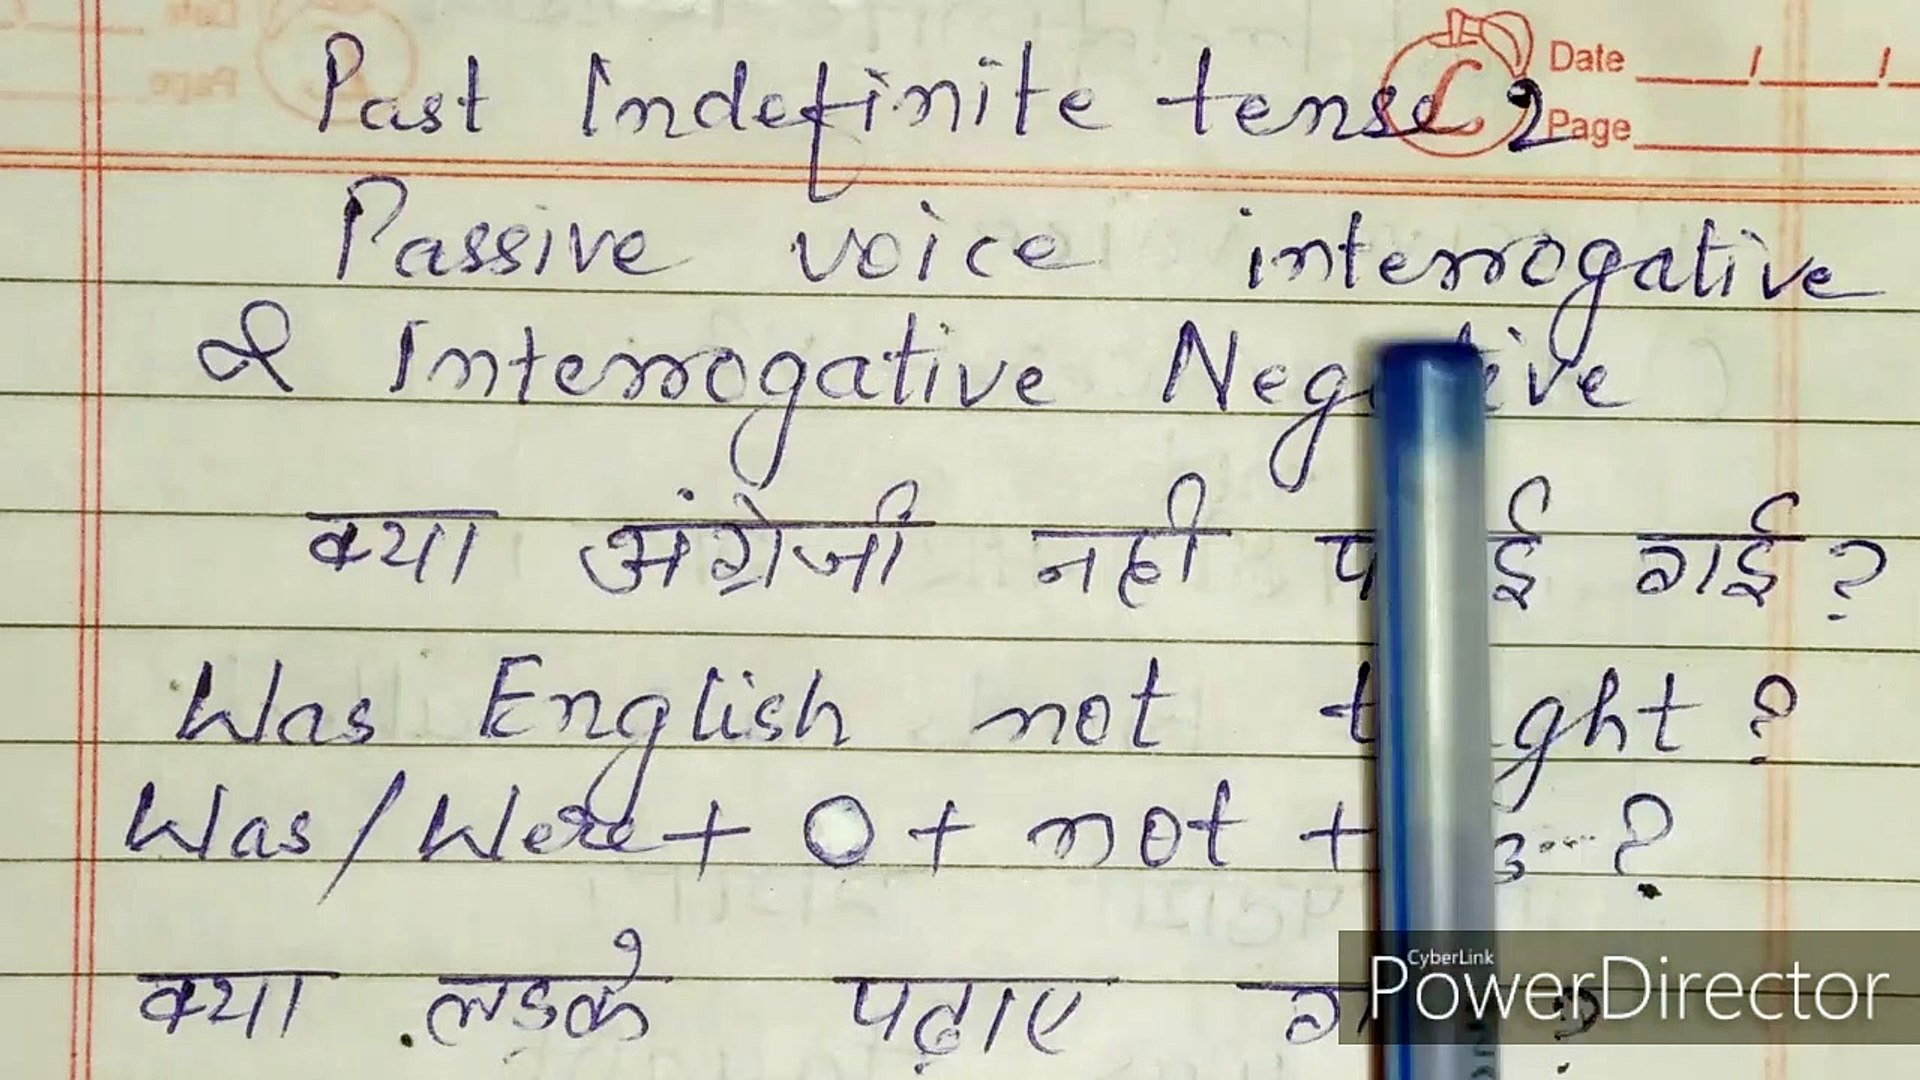 Date / /
Page
Past Indefinite tense 2
Passive voice interrogative
& Interrogative Negative
क्या अंग्रेजी नही गई ?
Was English not taught ?
Was/Were + O + not + 3 ... ?
क्या लड़के पढ़ाए ?
CyberLink
PowerDirector